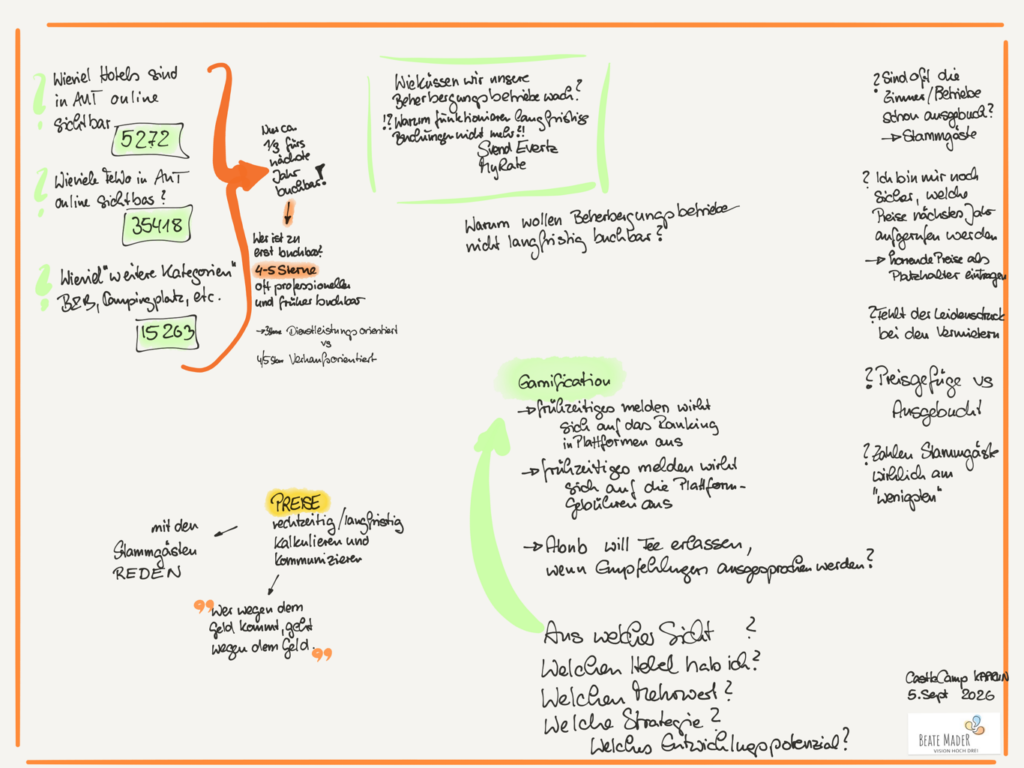 ? Wieviel Hotels sind
in AUT online
sichtbar
5272
? Wieviele FeWo in AUT
online sichtbar?
35418
? Wieviel "weitere Kategorien"
B&B, Campingplatz, etc.
15263
Nur ca
1/3 fürs
nächste
Jahr
buchbar!
Wer ist zu
erst buchbar?
4-5 Sterne
oft professioneller
und früher buchbar
→ 3 Sterne Dienstleistungsorientiert
vs
4/5 Stern Verkaufsorientiert
Wie küssen wir unsere
Beherbergungsbetriebe wach?
!? Warum funktionieren langfristige
Buchungen nicht mehr?!
Svend Evertz
MyRate
Warum wollen Beherbergungsbetriebe
nicht langfristig buchbar?
? Sind oft die
Zimmer/Betriebe
schon ausgebucht?
→ Stammgäste
? Ich bin mir noch
sicher, welche
Preise nächstes Jahr
aufgerufen werden
→ horrende Preise als
Platzhalter eintragen
? Fehlt der Leidensdruck
bei den Vermietern
? Preisgefüge vs
Ausgebucht
? Zahlen Stammgäste
wirklich am
"wenigsten"
Gamification
→ frühzeitiges melden wirkt
sich auf das Ranking
in Plattformen aus
→ frühzeitiges melden wirkt
sich auf die Plattform-
Gebühren aus
→ Abnb will Fee erlassen,
wenn Empfehlungen ausgesprochen werden?
PREISE
rechtzeitig/langfristig
kalkulieren und
kommunizieren
mit den
Stammgästen
REDEN
"Wer wegen dem
Geld kommt, geht
wegen dem Geld."
Aus welcher Sicht ?
Welchen Hebel hab ich?
Welchen Mehrwert?
Welche Strategie?
Welches Entwicklungspotenzial?
CastleCamp KAPRUN
5. Sept 2026
BEATE MADER
VISION HOCH DREI